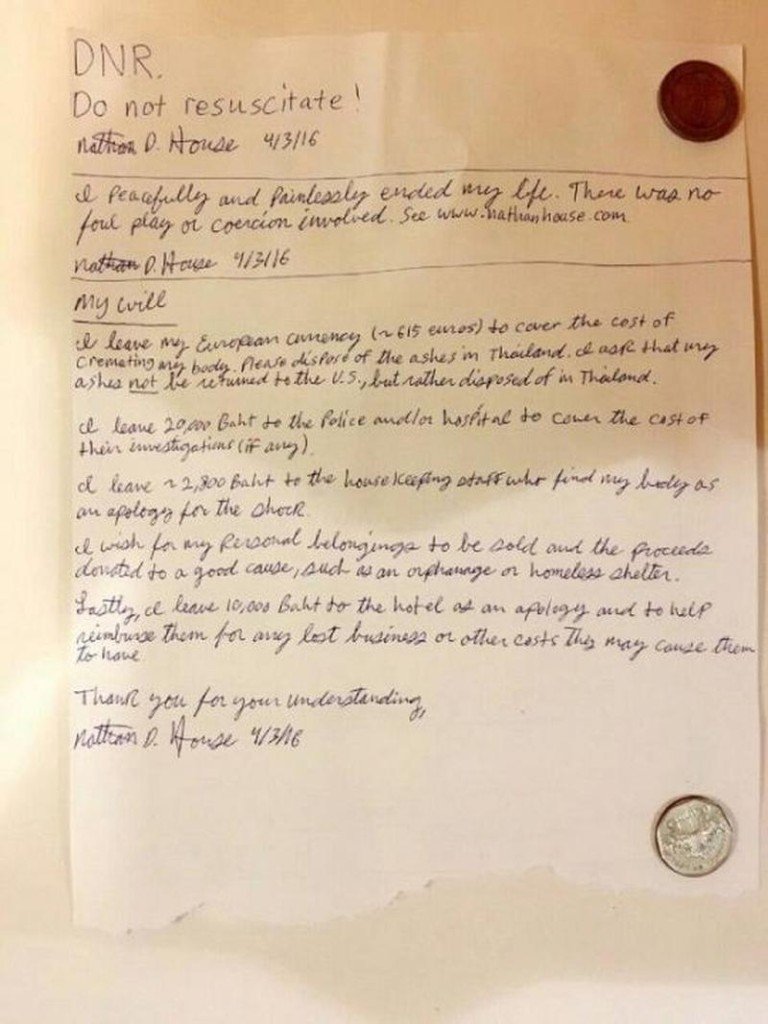 DNR.
Do not resuscitate!
Nathan D. House 4/3/16
I Peacefully and Painlessly ended my life. There was no
foul play or coercion involved. See www.nathanhouse.com
Nathan D. House 4/3/16
My will
I leave my European currency (~615 euros) to cover the cost of
cremating my body. Please dispose of the ashes in Thailand. I ask that my
ashes not be returned to the U.S., but rather disposed of in Thailand.
I leave 20,000 Baht to the Police and/or hospital to cover the cost of
their investigations (if any).
I leave ~2,800 Baht to the housekeeping staff who find my body as
an apology for the shock.
I wish for my personal belongings to be sold and the proceeds
donated to a good cause, such as an orphanage or homeless shelter.
Lastly, I leave 10,000 Baht to the hotel as an apology and to help
reimburse them for any lost business or other costs they may cause them
to have.
Thank you for your understanding,
Nathan D. House 4/3/16